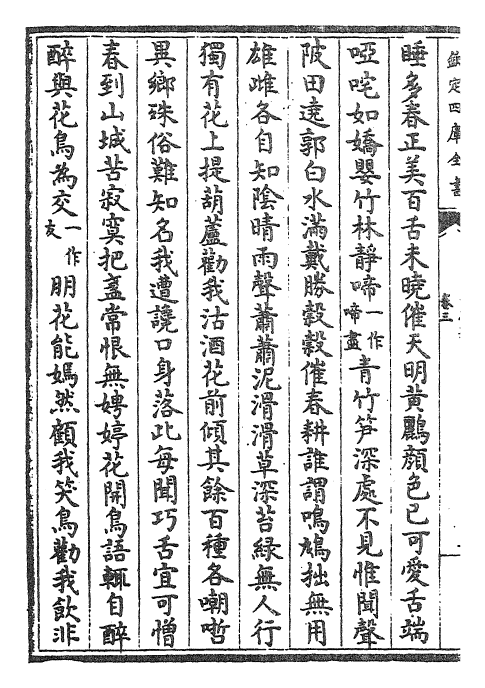 欽定四庫全書
卷三
睡多春正美百舌未曉催天明黃鸝顔色已可愛舌端
啞咤如嬌嬰竹林靜啼一作啼盡青竹笋深處不見惟聞聲
陂田遶郭白水滿戴勝糓糓催春耕誰謂鳴鳩拙無用
雄雌各自知隂晴雨聲蕭蕭泥滑滑草深苔緑無人行
獨有花上提葫蘆勸我沽酒花前傾其餘百種各嘲哳
異鄉殊俗難知名我遭讒口身落此每聞巧舌宜可憎
春到山城苦寂寞把盞常恨無娉婷花開鳥語輒自醉
醉與花鳥為交一作友朋花能嫣然顧我笑鳥勸我飲非